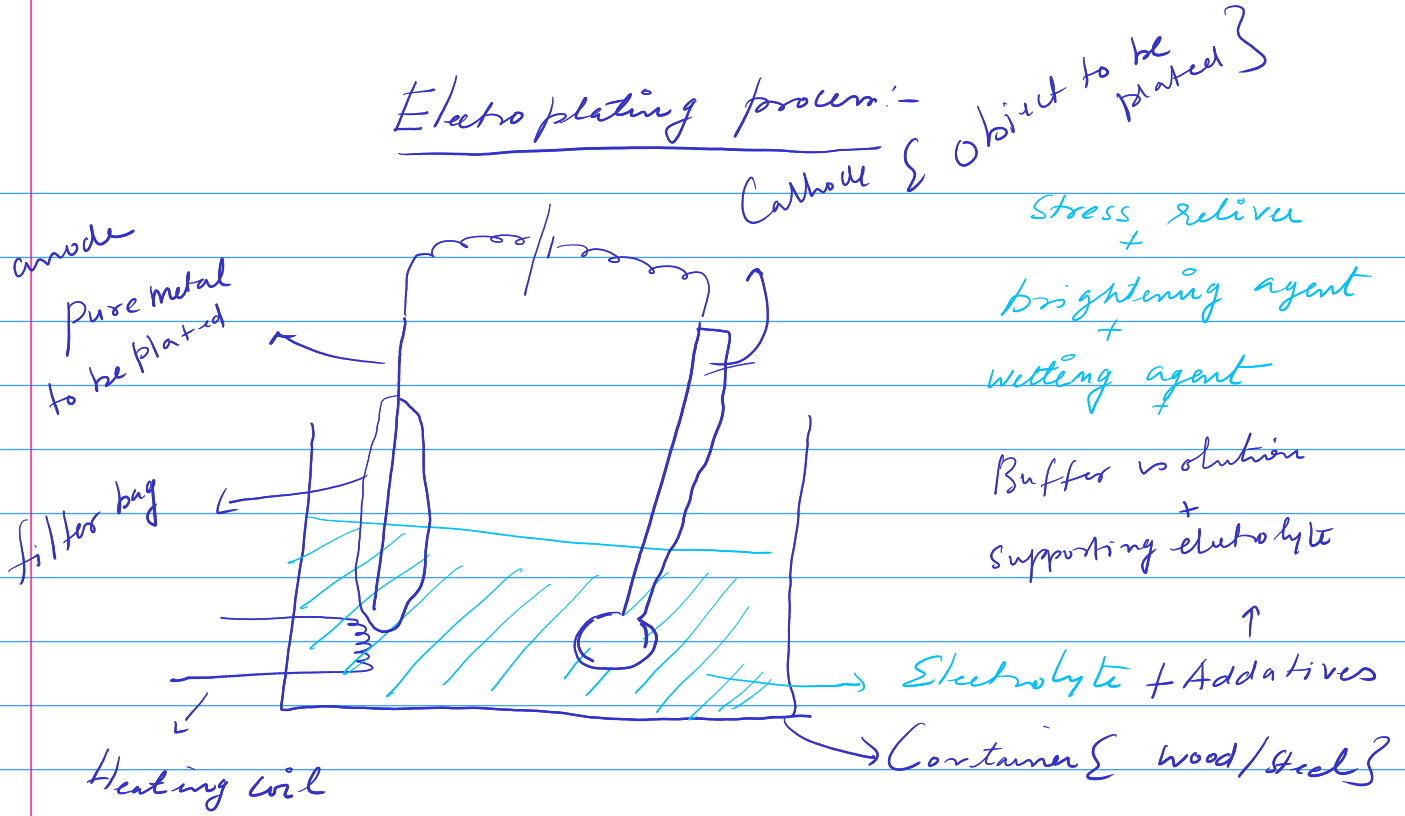 Electroplating process:-
Cathode { Object to be
plated }
anode
Pure metal
to be plated
filter bag
Heating coil
Stress reliver
+
brightening agent
+
wetting agent
+
Buffer solution
+
supporting electrolyte
Electrolyte + Addatives
Container { wood/steel }